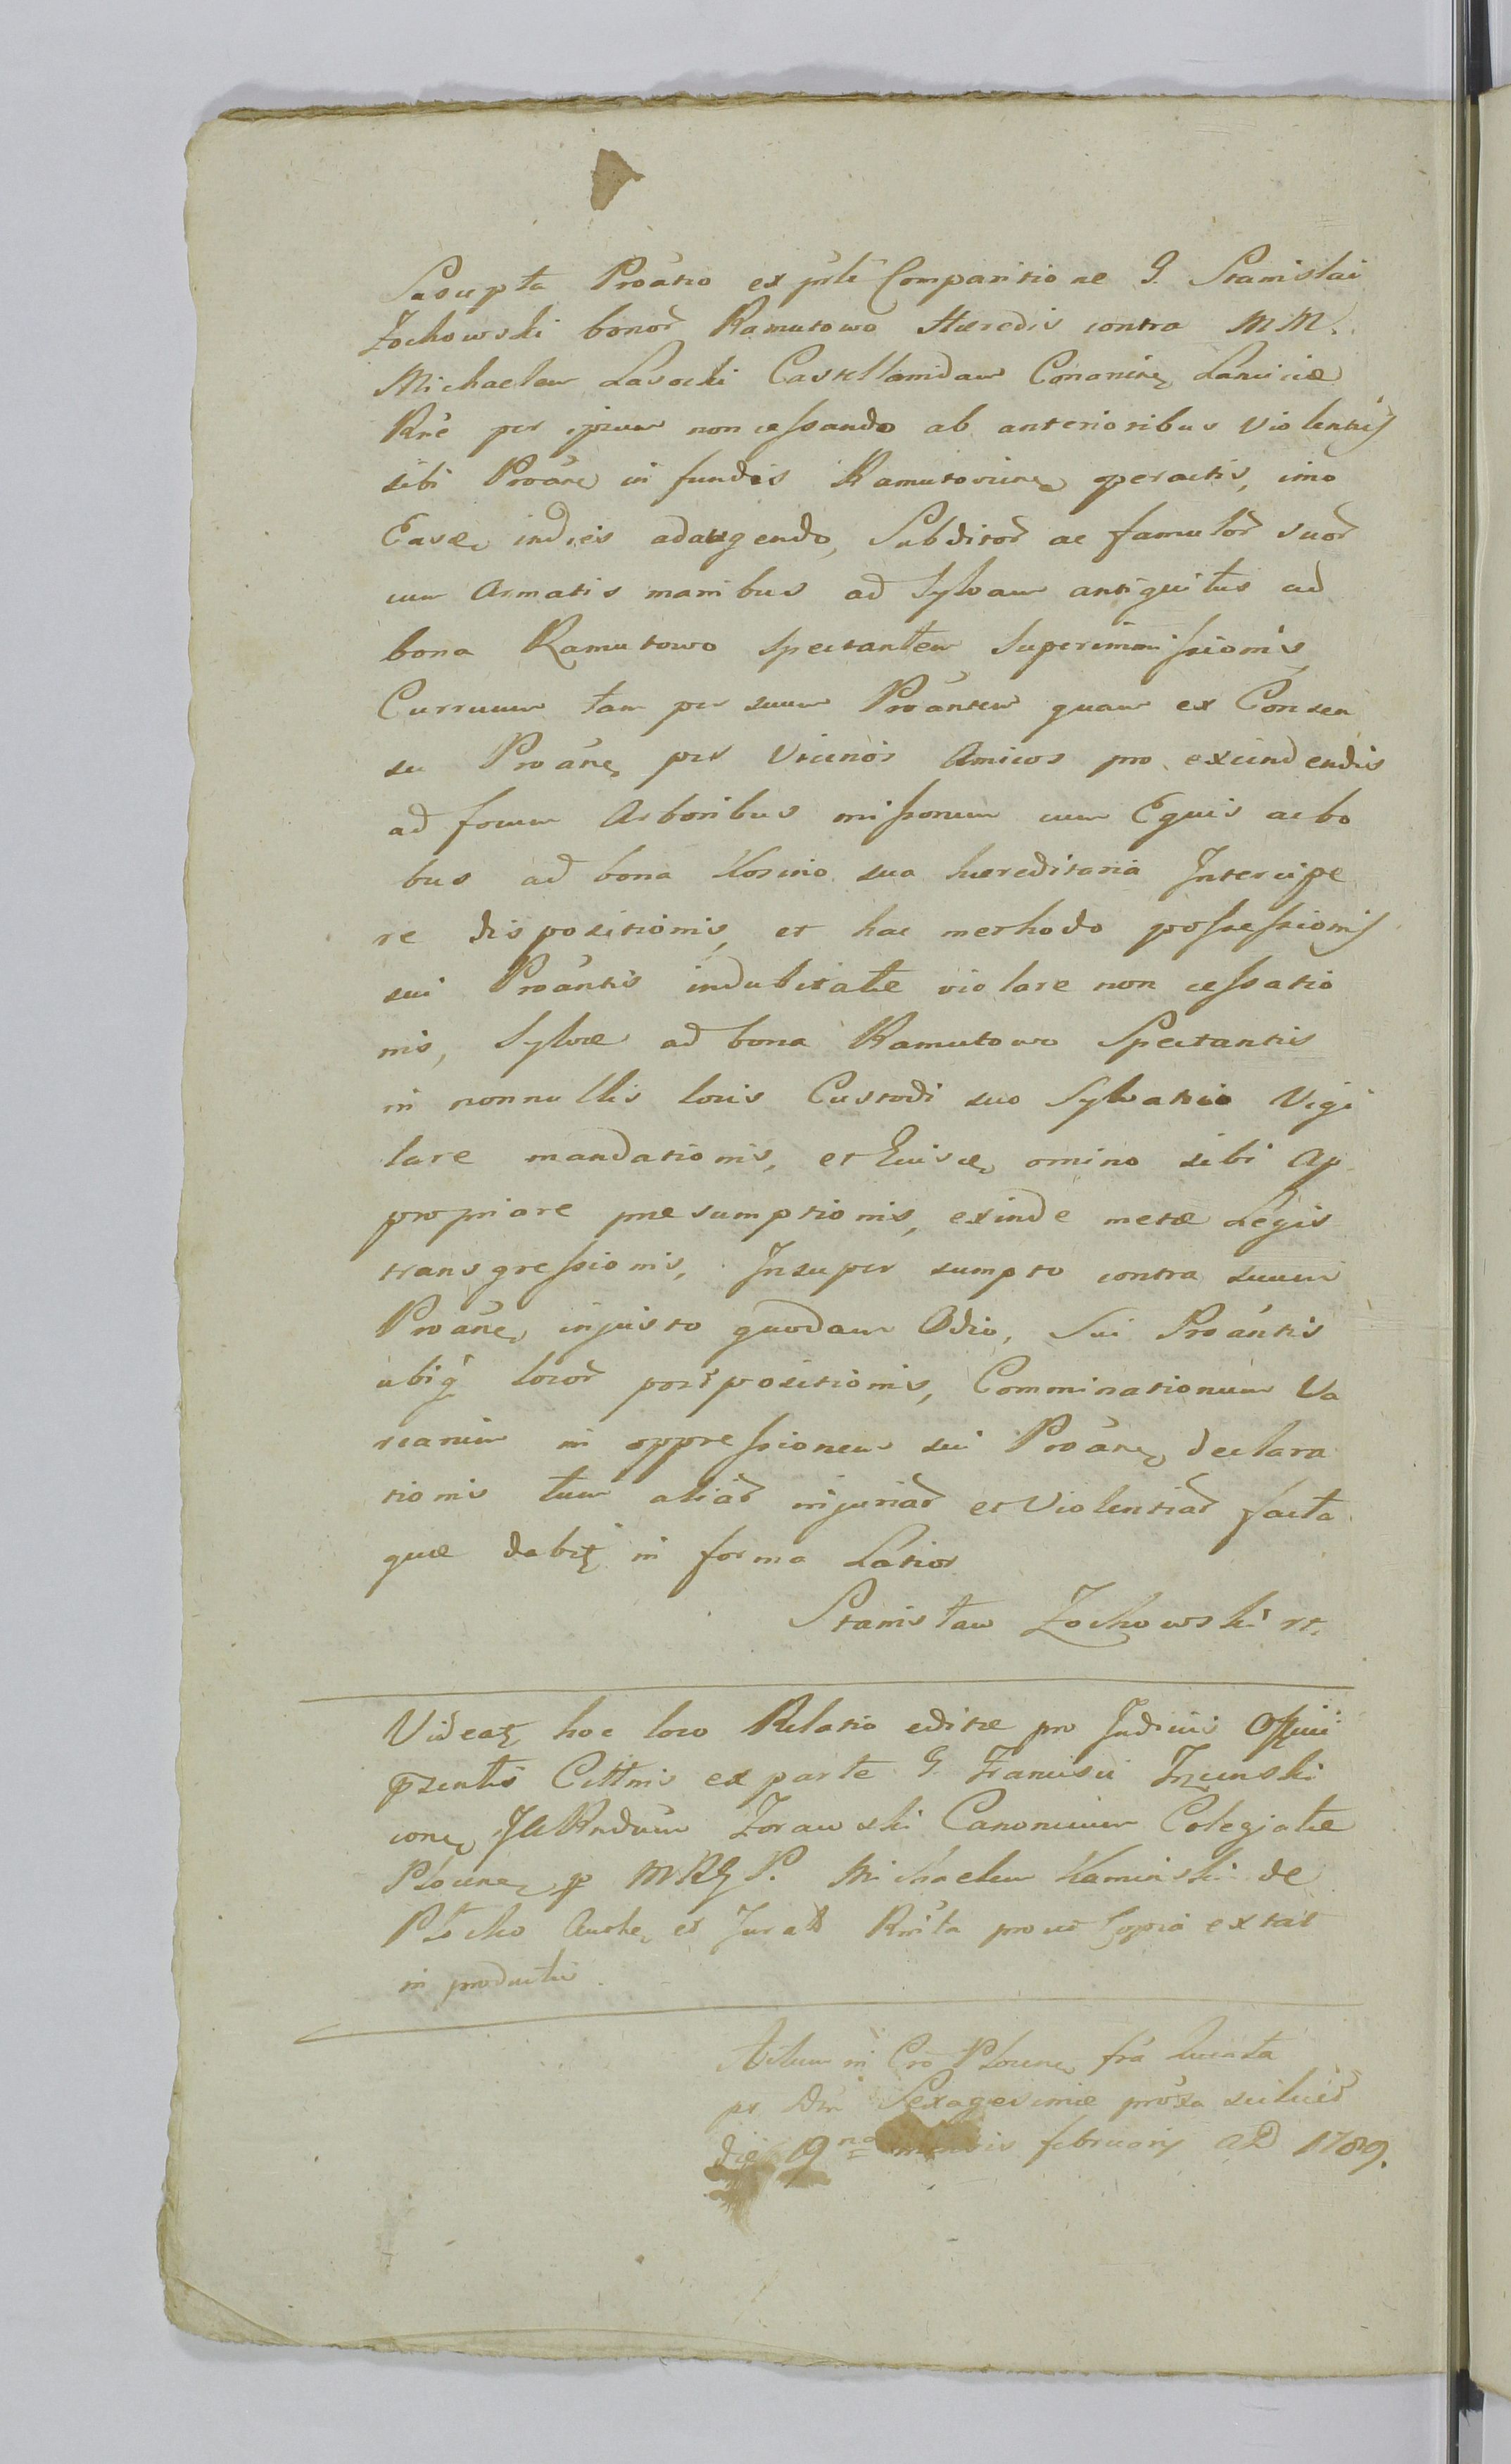 Suscepta Proãtio ex pñti Comparitione G. Stanislai
Zochowski bonor̃ Ramutowo Hæredis contra MM.
Michaelem Lasocki Castellanidam Cononicũ Lanciciæ
Rñe per ipsum non cessando ab anterioribus Violentijs
sibi Proãne in fundis Ramutovieñ peractis, imo
Easdẽ indies adaugendo, Subditor̃ ac famulor̃ suor̃
cum Armatis manibus ad Sylvam antiquitus ad
bona Ramutowo Spectantem Superimmissionis,
Curruum tam per suum Proãntem quam ex Consen
su Proãne, per Vicinos Amicos pro excindendis
ad focum Arboribus missorum cum Equis ac bo
bus ad bona Kosino sua hæreditaria Intercipe
re dispositionis, et hac methodo possessionis
sui Proãntis indubitatæ violare non cessatio
nis, Sylvæ ad bona Ramutowo Spectantis
in nonnullis locis Custodi suo Sylvatico Vigi
lare mandationis, et Eiusdẽ omino sibi Ap
propriare præsumptionis, exinde metæ Legis
transgressionis, Insuper sumpto contra suum
Proãne, injusto quodam Odio, Sui Proãntis
ubiq̃ locor̃ postpositionis, Comminationum Va
riarum in oppressionem sui Proãne, declara
tionis tum aliar̃ injuriar̃ et Violentiar̃ facta
quæ dabit in forma Latior
Stanisław Zochowski
Videat hoc loco Relatio editæ pro Judiciis Officii
p̃zentis Cittnis ex parte G. Francisci
Zorawski Canonicum Colegiatæ
Plocen p Michaelem Kaminski de
Płocko Authe, et Jurat prout Copia extat
in productu
Actum in Cro Plocen fra
pr Dm Sexagesimæ proxa scilicet
die 19na mensis february AD 1789.